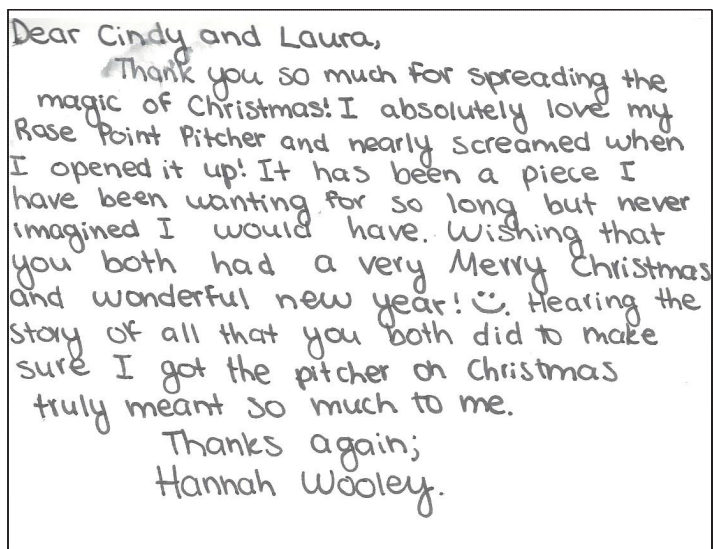 Dear Cindy and Laura,
Thank you so much for spreading the
magic of Christmas! I absolutely love my
Rose Point Pitcher and nearly screamed when
I opened it up! It has been a piece I
have been wanting for so long but never
imagined I would have. Wishing that
you both had a very Merry Christmas
and wonderful new year! Hearing the
story of all that you both did to make
sure I got the pitcher on Christmas
truly meant so much to me.
Thanks again;
Hannah Wooley.